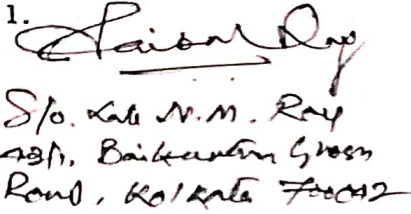 1.
Ray
S/o. Late N.M. Ray
48/1, Baikuntha Ghosh
Road, Kolkata 700042